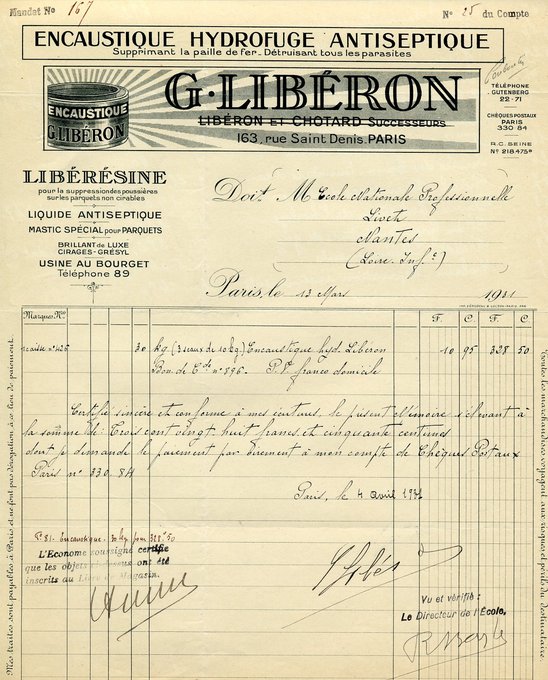 Mandat No 167
No 25 du Compte
ENCAUSTIQUE HYDROFUGE ANTISEPTIQUE
Supprimant la paille de fer_Détruisant tous les parasites
ENCAUSTIQUE
G.LIBÉRON
G.LIBÉRON
LIBÉRON ET CHOTARD SUCCESSEURS
163, rue Saint Denis. PARIS
TÉLÉPHONE
GUTENBERG
22-71
CHÈQUES POSTAUX
PARIS
330-84
R.C. SEINE
No 218.475B
LIBÉRÉSINE
pour la suppression des poussières
sur les parquets non cirables
LIQUIDE ANTISEPTIQUE
MASTIC SPÉCIAL pour PARQUETS
BRILLANT de LUXE
CIRAGES-GRÉSYL
USINE AU BOURGET
Téléphone 89
Doit M Ecole Nationale Professionnelle
Livet
Nantes
(Loire. Infre)
Paris, le 13 Mars 1931
Marques Nos
F. C. F. C.
caisse n° 425 30 kg (3 seaux de 10 kg.) Encaustique hyd. Libéron 10 95 328 50
Bon de Cde n° 896. franco domicile
Certifié sincère et conforme à mes écritures, le présent Mémoire s'élevant à
la somme de: Trois cent vingt-huit francs et cinquante centimes
dont je demande le paiement par virement à mon compte de Chèques Postaux
Paris n° 330.84
Paris, le 4 avril 1931
encaustique. 30 kg pour 328f.50
L'Econome soussigné certifie
que les objets ci-dessus ont été
inscrits au Livre de Magasin.
Vu et vérifié:
Le Directeur de l'École,
Mes traites sont payables à Paris et ne font pas dérogation à ce lieu de paiement.
Toutes les marchandises voyagent aux risques et périls du destinataire.